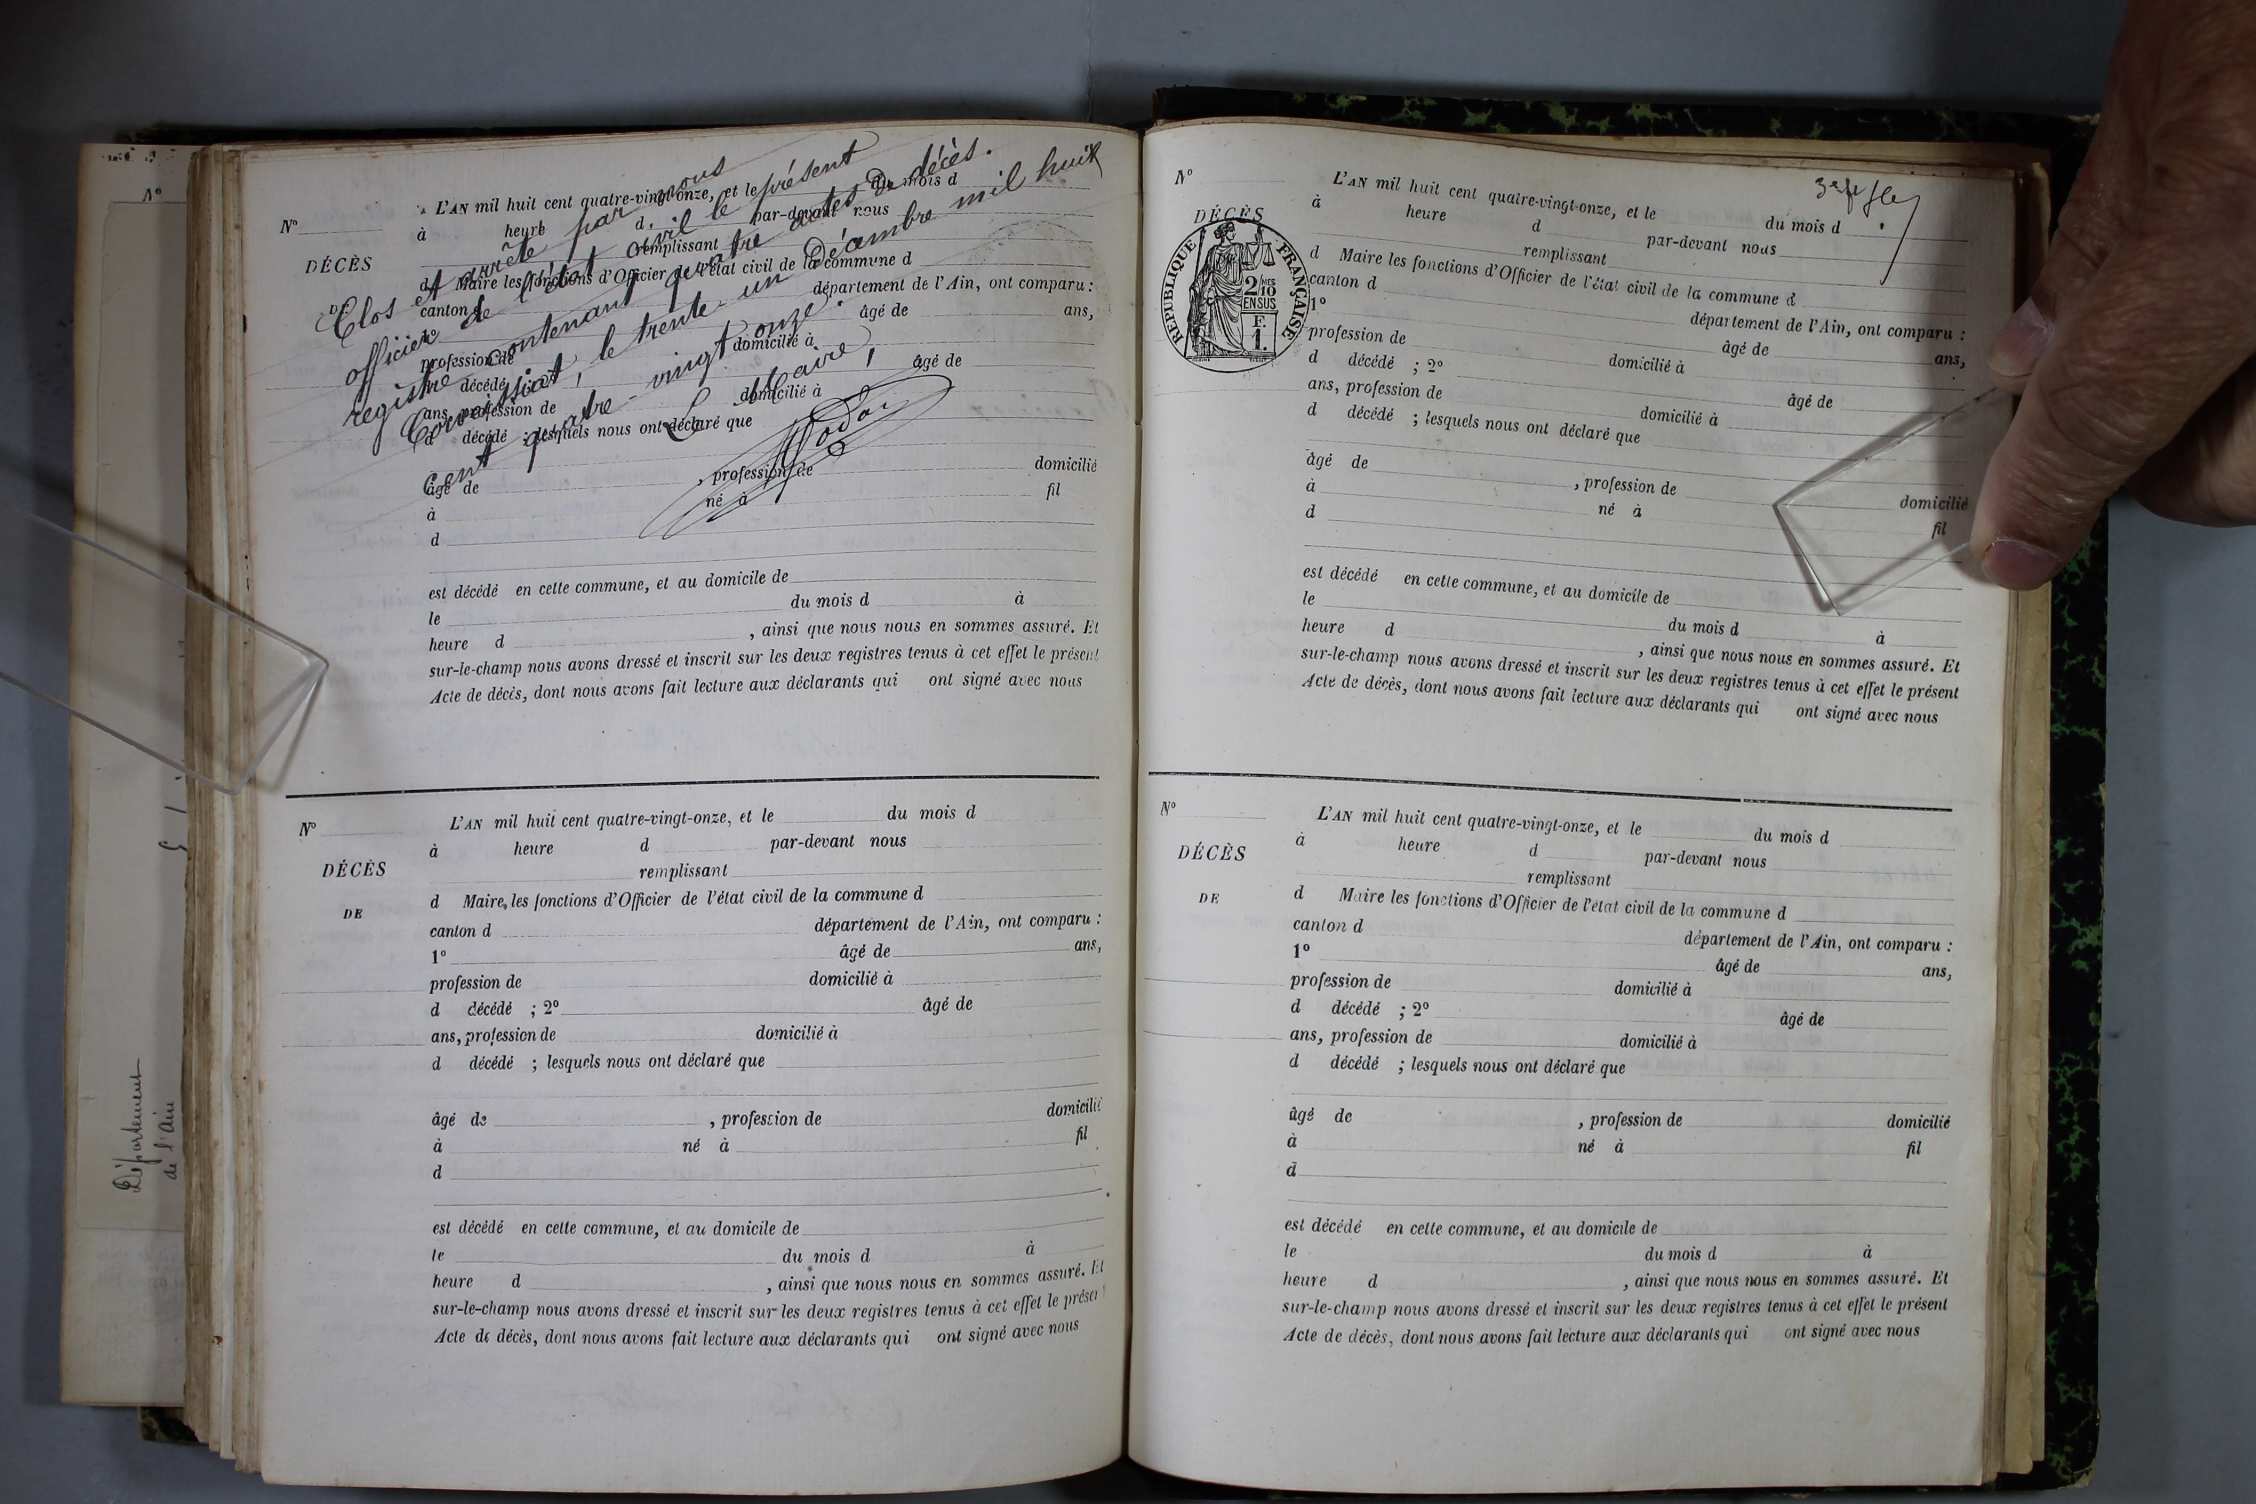 Département
de l'Ain
Nº
Nº
DÉCÈS
DE
Clos et arrêté par nous
officier de l'état civil le présent
registre contenant quatre actes de décès.
le trente-un Décembre mil huit
cent quatre-vingt onze.
Le Maire,
L'AN mil huit cent quatre-vingt-onze, et le du mois d
à heure d par-devant nous
remplissant
d Maire les fonctions d'Officier de l'état civil de la commune d
canton d département de l'Ain, ont comparu :
1º âgé de ans,
profession de domicilié à
d décédé ; 2º âgé de
ans, profession de domicilié à
d décédé ; lesquels nous ont déclaré que
âgé de , profession de domicilié
à né à fil
d
est décédé en cette commune, et au domicile de
le du mois d à
heure d , ainsi que nous nous en sommes assuré. Et
sur-le-champ nous avons dressé et inscrit sur les deux registres tenus à cet effet le présent
Acte de décès, dont nous avons fait lecture aux déclarants qui ont signé avec nous
Nº
DÉCÈS
DE
L'AN mil huit cent quatre-vingt-onze, et le du mois d
à heure d par-devant nous
remplissant
d Maire les fonctions d'Officier de l'état civil de la commune d
canton d département de l'Ain, ont comparu :
1º âgé de ans,
profession de domicilié à
d décédé ; 2º âgé de
ans, profession de domicilié à
d décédé ; lesquels nous ont déclaré que
âgé de , profession de domicilié
à né à fil
d
est décédé en cette commune, et au domicile de
le du mois d à
heure d , ainsi que nous nous en sommes assuré. Et
sur-le-champ nous avons dressé et inscrit sur les deux registres tenus à cet effet le présent
Acte de décès, dont nous avons fait lecture aux déclarants qui ont signé avec nous
Nº
DÉCÈS
RÉPUBLIQUE FRANÇAISE
2/10 MES
EN SUS
F.
1.
L'AN mil huit cent quatre-vingt-onze, et le du mois d
à heure d par-devant nous
remplissant
d Maire les fonctions d'Officier de l'état civil de la commune d
canton d département de l'Ain, ont comparu :
1º âgé de ans,
profession de domicilié à
d décédé ; 2º âgé de
ans, profession de domicilié à
d décédé ; lesquels nous ont déclaré que
âgé de , profession de domicilié
à né à fil
d
est décédé en cette commune, et au domicile de
le du mois d à
heure d , ainsi que nous nous en sommes assuré. Et
sur-le-champ nous avons dressé et inscrit sur les deux registres tenus à cet effet le présent
Acte de décès, dont nous avons fait lecture aux déclarants qui ont signé avec nous
Nº
DÉCÈS
DE
L'AN mil huit cent quatre-vingt-onze, et le du mois d
à heure d par-devant nous
remplissant
d Maire les fonctions d'Officier de l'état civil de la commune d
canton d département de l'Ain, ont comparu :
1º âgé de ans,
profession de domicilié à
d décédé ; 2º âgé de
ans, profession de domicilié à
d décédé ; lesquels nous ont déclaré que
âgé de , profession de domicilié
à né à fil
d
est décédé en cette commune, et au domicile de
le du mois d à
heure d , ainsi que nous nous en sommes assuré. Et
sur-le-champ nous avons dressé et inscrit sur les deux registres tenus à cet effet le présent
Acte de décès, dont nous avons fait lecture aux déclarants qui ont signé avec nous